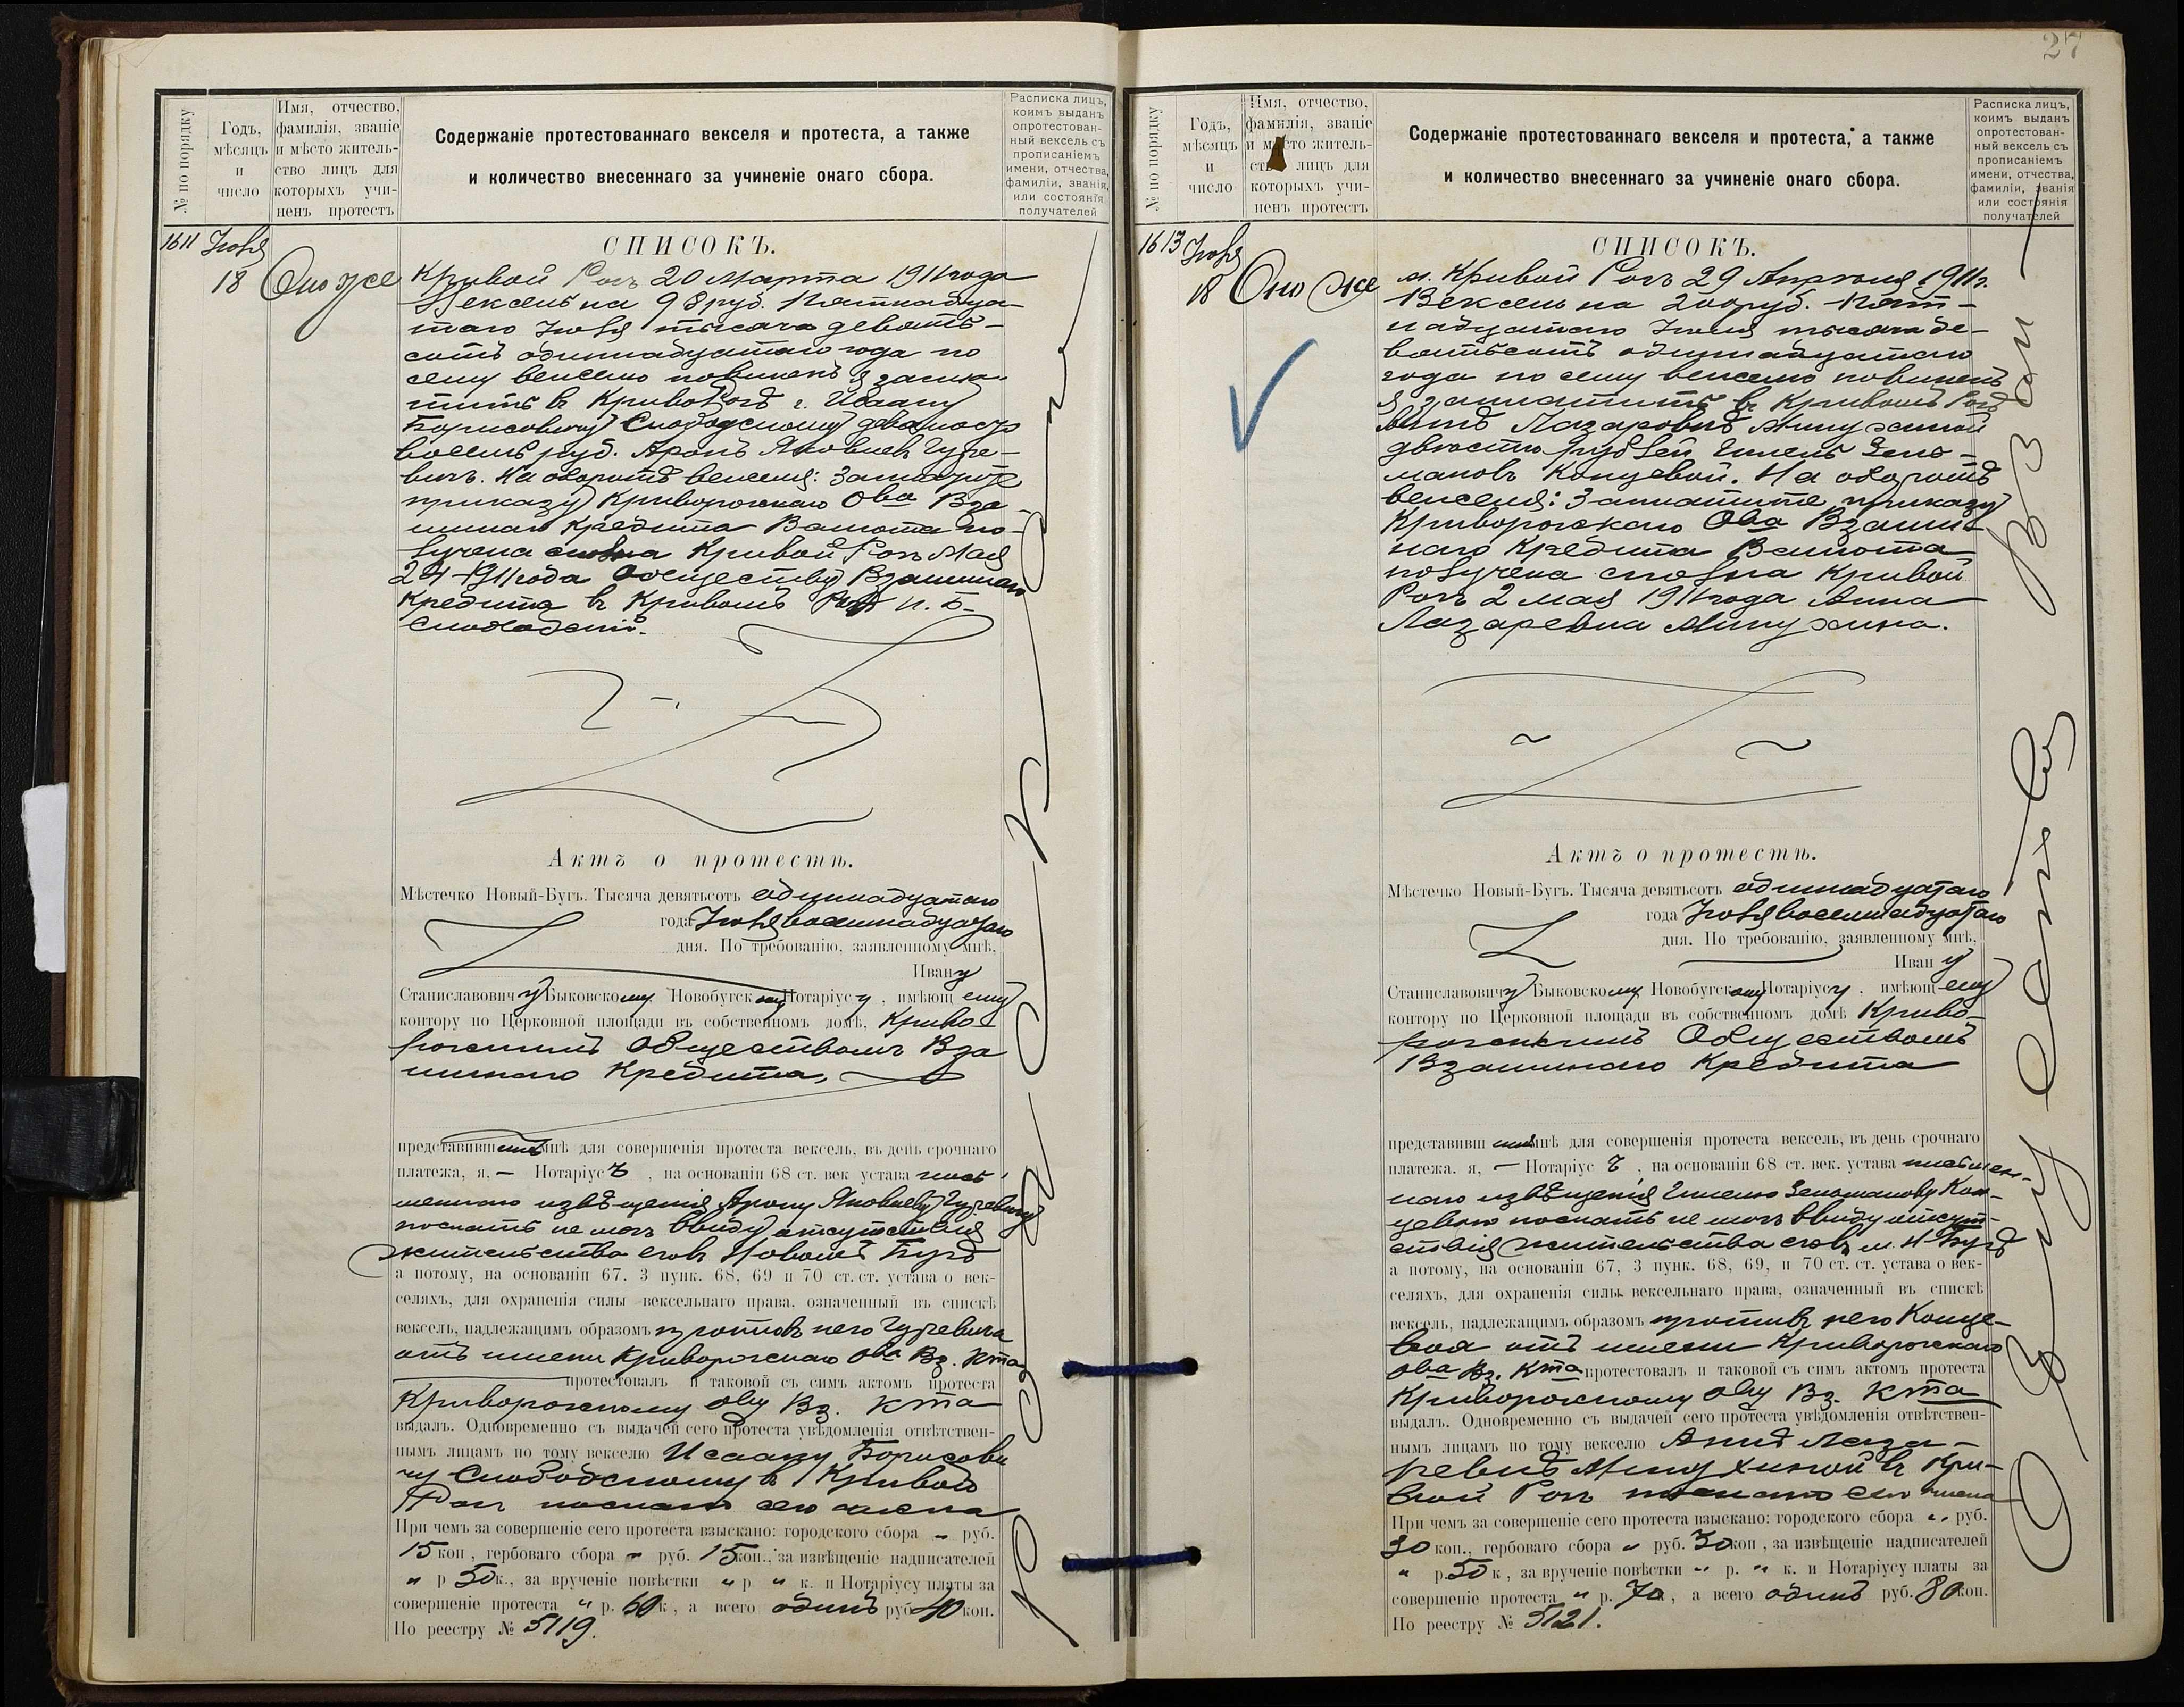 № по порядку
Годъ,
мѣсяцъ
и
число
Имя, отчество,
фамилія, званіе
и мѣсто житель-
ство лицъ для
которыхъ учи-
ненъ протестъ
Содержаніе протестованнаго векселя и протеста, а также
и количество внесеннаго за учиненіе онаго сбора.
Расписка лицъ,
коимъ выданъ
опротестован-
ный вексель съ
прописаніемъ
имени, отчества,
фамиліи, званія,
или состоянія
получателей
1611 Іюля
18 Оно же
СПИСОКЪ.
Кривой Рогъ 20 Марта 1911 года
Вексель на 98 руб. Пятнадца-
таго Іюля тысяча девять-
сотъ одиннадцатаго года по
сему векселю повиненъ я запла-
тить в Кривом Рогѣ г. Исааку
Борисовичу Слободскому девяносто
восемь руб. Аронъ Яковлевъ Гуре-
вичъ. На оборотѣ векселя: Заплатите
приказу Криворожскаго Ова Вза-
имнаго Кредита Валюта по-
лучена сполна Кривой Рогъ Мая
24 1911 года Обществу Взаимнаго
Кредита въ Кривомъ Рогѣ И. Б.
Слободскій.
Актъ о протестѣ.
Мѣстечко Новый-Бугъ. Тысяча девятьсотъ одиннадцатаго
года Іюля восемнадцатаго
дня. По требованію, заявленному мнѣ,
Ивану
Станиславовичу Быковскому, Новобугскому Нотаріусу, имѣющему
контору по Церковной площади въ собственномъ домѣ, Криво-
рожскимъ Обществомъ Вза
имнаго Кредита,
представившимъ мнѣ для совершенія протеста вексель, въ день срочнаго
платежа, я, — Нотаріусъ, на основаніи 68 ст. век устава пись-
меннаго извѣщенія Арону Яковлеву Гуревичу
послать не могъ ввиду отсутствія
жительства его въ Новомъ Бугѣ
а потому, на основаніи 67. 3 пунк. 68, 69 и 70 ст. ст. устава о век-
селяхъ, для охраненія силы вексельнаго права, означенный въ спискѣ
вексель, надлежащимъ образомъ противъ него Гуревича
отъ имени Криворожскаго Ова Вз. Кта
протестовалъ и таковой съ симъ актомъ протеста
Криворожскому Ову Вз. Кта
выдалъ. Одновременно съ выдачей сего протеста увѣдомленія отвѣтствен-
нымъ лицамъ по тому векселю Исааку Борисови
чу Слободскому в Кривой
Рогъ послано сего числа
При чемъ за совершеніе сего протеста взыскано: городского сбора „ руб.
15 коп, гербоваго сбора „ руб. 15 коп., за извѣщеніе надписателей
„ р 50 к., за врученіе повѣстки „ р „ к. и Нотаріусу платы за
совершеніе протеста „ р. 60 к, а всего одинъ руб 40 коп.
По реестру № 5119.
27
№ по порядку
Годъ,
мѣсяцъ
и
число
Имя, отчество,
фамилія, званіе
и мѣсто житель-
ство лицъ для
которыхъ учи-
ненъ протестъ
Содержаніе протестованнаго векселя и протеста, а также
и количество внесеннаго за учиненіе онаго сбора.
Расписка лицъ,
коимъ выданъ
опротестован-
ный вексель съ
прописаніемъ
имени, отчества,
фамиліи, званія
или состоянія
получателей
1613 Іюля
18 Оно же
СПИСОКЪ.
м. Кривой Рогъ 29 Апрѣля 1911 г.
Вексель на 200 руб. Пят-
надцатаго Іюля тысяча де-
вятьсотъ одиннадцатаго
года по сему векселю повиненъ
я заплатить в Кривомъ Рогѣ
Аннѣ Лазаревнѣ Минухиной
двѣсти рублей
Концевой. На оборотѣ
векселя: Заплатите приказу
Криворожскаго Ова Взаим-
наго Кредита Валюта
получена сполна Кривой
Рогъ 2 мая 1911 года Анна
Лазаревна Минухина.
Актъ о протестѣ.
Мѣстечко Новый-Бугъ. Тысяча девятьсотъ одиннадцатаго
года Іюля восемнадцатаго
дня. По требованію, заявленному мнѣ,
Ивану
Станиславовичу Быковскому, Новобугскому Нотаріусу, имѣющему
контору по Церковной площади въ собственномъ домѣ Криво-
рожскимъ Обществомъ
Взаимнаго Кредита
представившимъ мнѣ для совершенія протеста вексель, въ день срочнаго
платежа. я, — Нотаріусъ, на основаніи 68 ст. век. устава письмен-
наго извѣщенія Кон-
цевому послать не могъ ввиду отсут-
ствія жительства его въ м. Н-Бугѣ
а потому, на основаніи 67, 3 пунк. 68, 69, и 70 ст. ст. устава о век-
селяхъ, для охраненія силы вексельнаго права, означенный въ спискѣ
вексель, надлежащимъ образомъ противъ него Конце-
воя отъ имени Криворожскаго
Ова Вз. Кта протестовалъ и таковой съ симъ актомъ протеста
Криворожскому Ову Вз. Кта
выдалъ. Одновременно съ выдачей сего протеста увѣдомленія отвѣтствен-
нымъ лицамъ по тому векселю Аннѣ Лаза-
ревнѣ Минухиной в Кри-
вой Рогъ послано сего числа
При чемъ за совершеніе сего протеста взыскано: городского сбора „ руб.
30 коп., гербоваго сбора „ руб. 30 коп, за извѣщеніе надписателей
„ р. 50 к, за врученіе повѣстки „ р. „ к. и Нотаріусу платы за
совершеніе протеста „ р. 70 к, а всего одинъ руб. 80 коп.
По реестру № 5121.